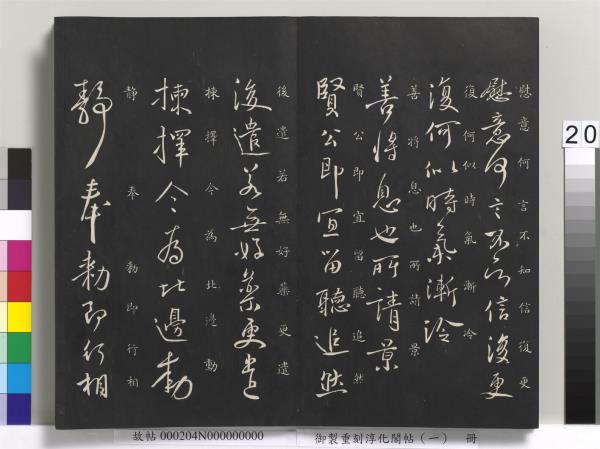 慰意何言不知信復更
慰意何言不知信復更
復何似時氣漸冷
復何似時氣漸冷
善將息也所請景
善將息也所請景
賢公即宜留聽追然
賢公即宜留聽追然
後遣若無好藥更遣
後遣若無好藥更遣
揀擇今為北邊動
揀擇今為北邊動
静奉勅即行相
静奉勅即行相
20
故帖 000204N000000000
御製重刻淳化閣帖（一） 冊